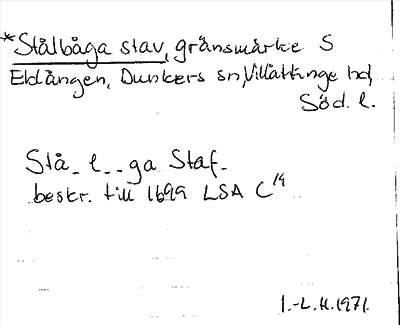 *Stålbåga stav, gränsmärke S
Eklången, Dunkers sn, Villåttinge hd,
Söd. l.
Stå_ l_ _ga Staf_
beskr. till 1699 LSA C 14
I.-L. H. 1971.